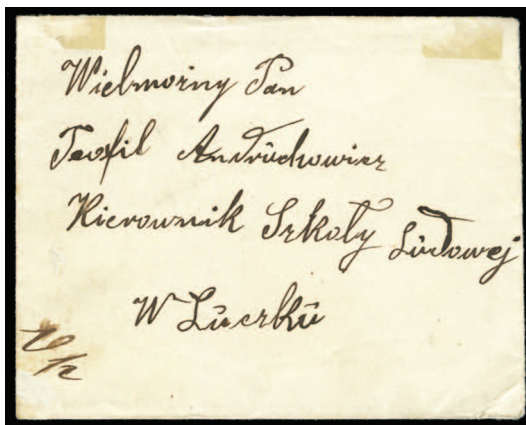 Wielmożny Pan
Teofil Andrüchowicz
Kierownik Szkoły Lüdowej
W Lüczkü